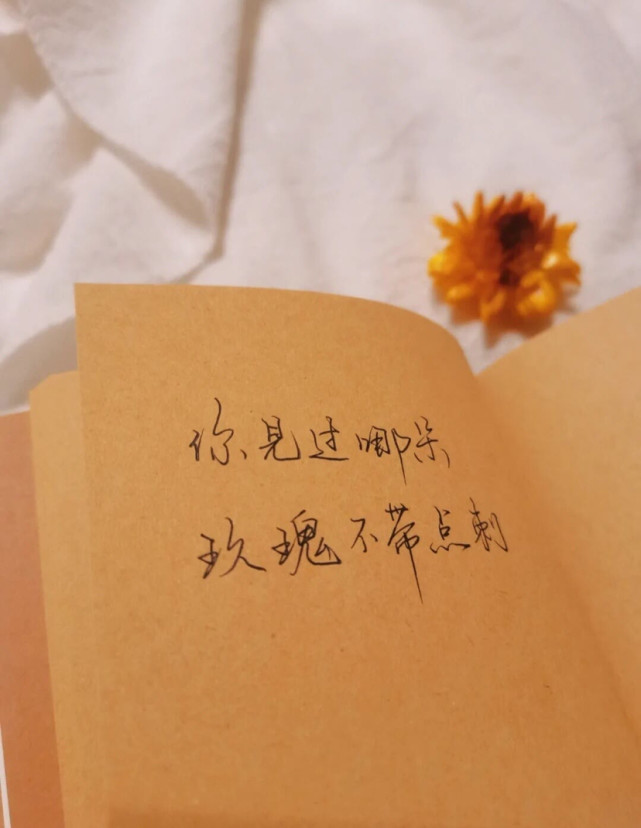 你见过哪朵
玫瑰不带点刺